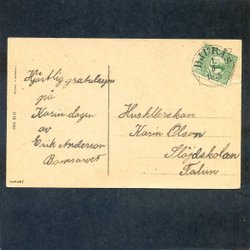 Hjärtlig gratulation
på
Karin dagen
av
Erik Anderson
Bomsarvet
Hushllerskan
Karin Olson
Slöjdskolan
Falun